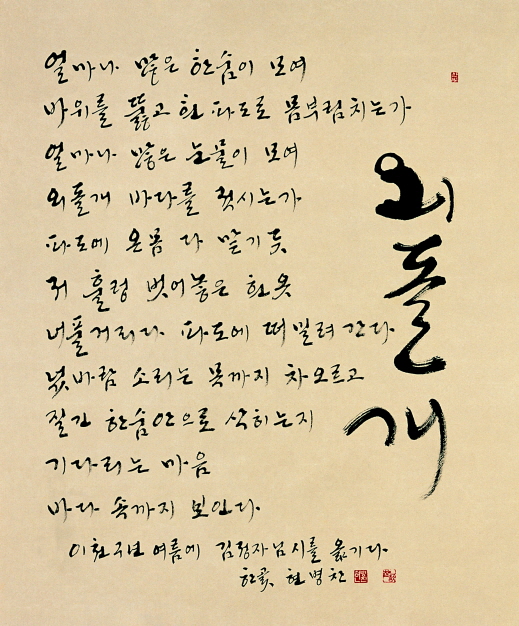 외돌개
얼마나 많은 한숨이 모여
바위를 뚫고 흰 파도로 몸부림치는가
얼마나 많은 눈물이 모여
외돌개 바다를 적시는가
파도에 온몸 다 맡기듯
훌렁 벗어놓은 헌옷
너풀거리다 파도에 떠밀려 간다
바람 소리는 목까지 차오르고
질긴 한숨만으로 삭히는지
기다리는 마음
바다 속까지 보인다.
이천구년 여름에 김정자님 시를 옮기다.
한곬 현병찬